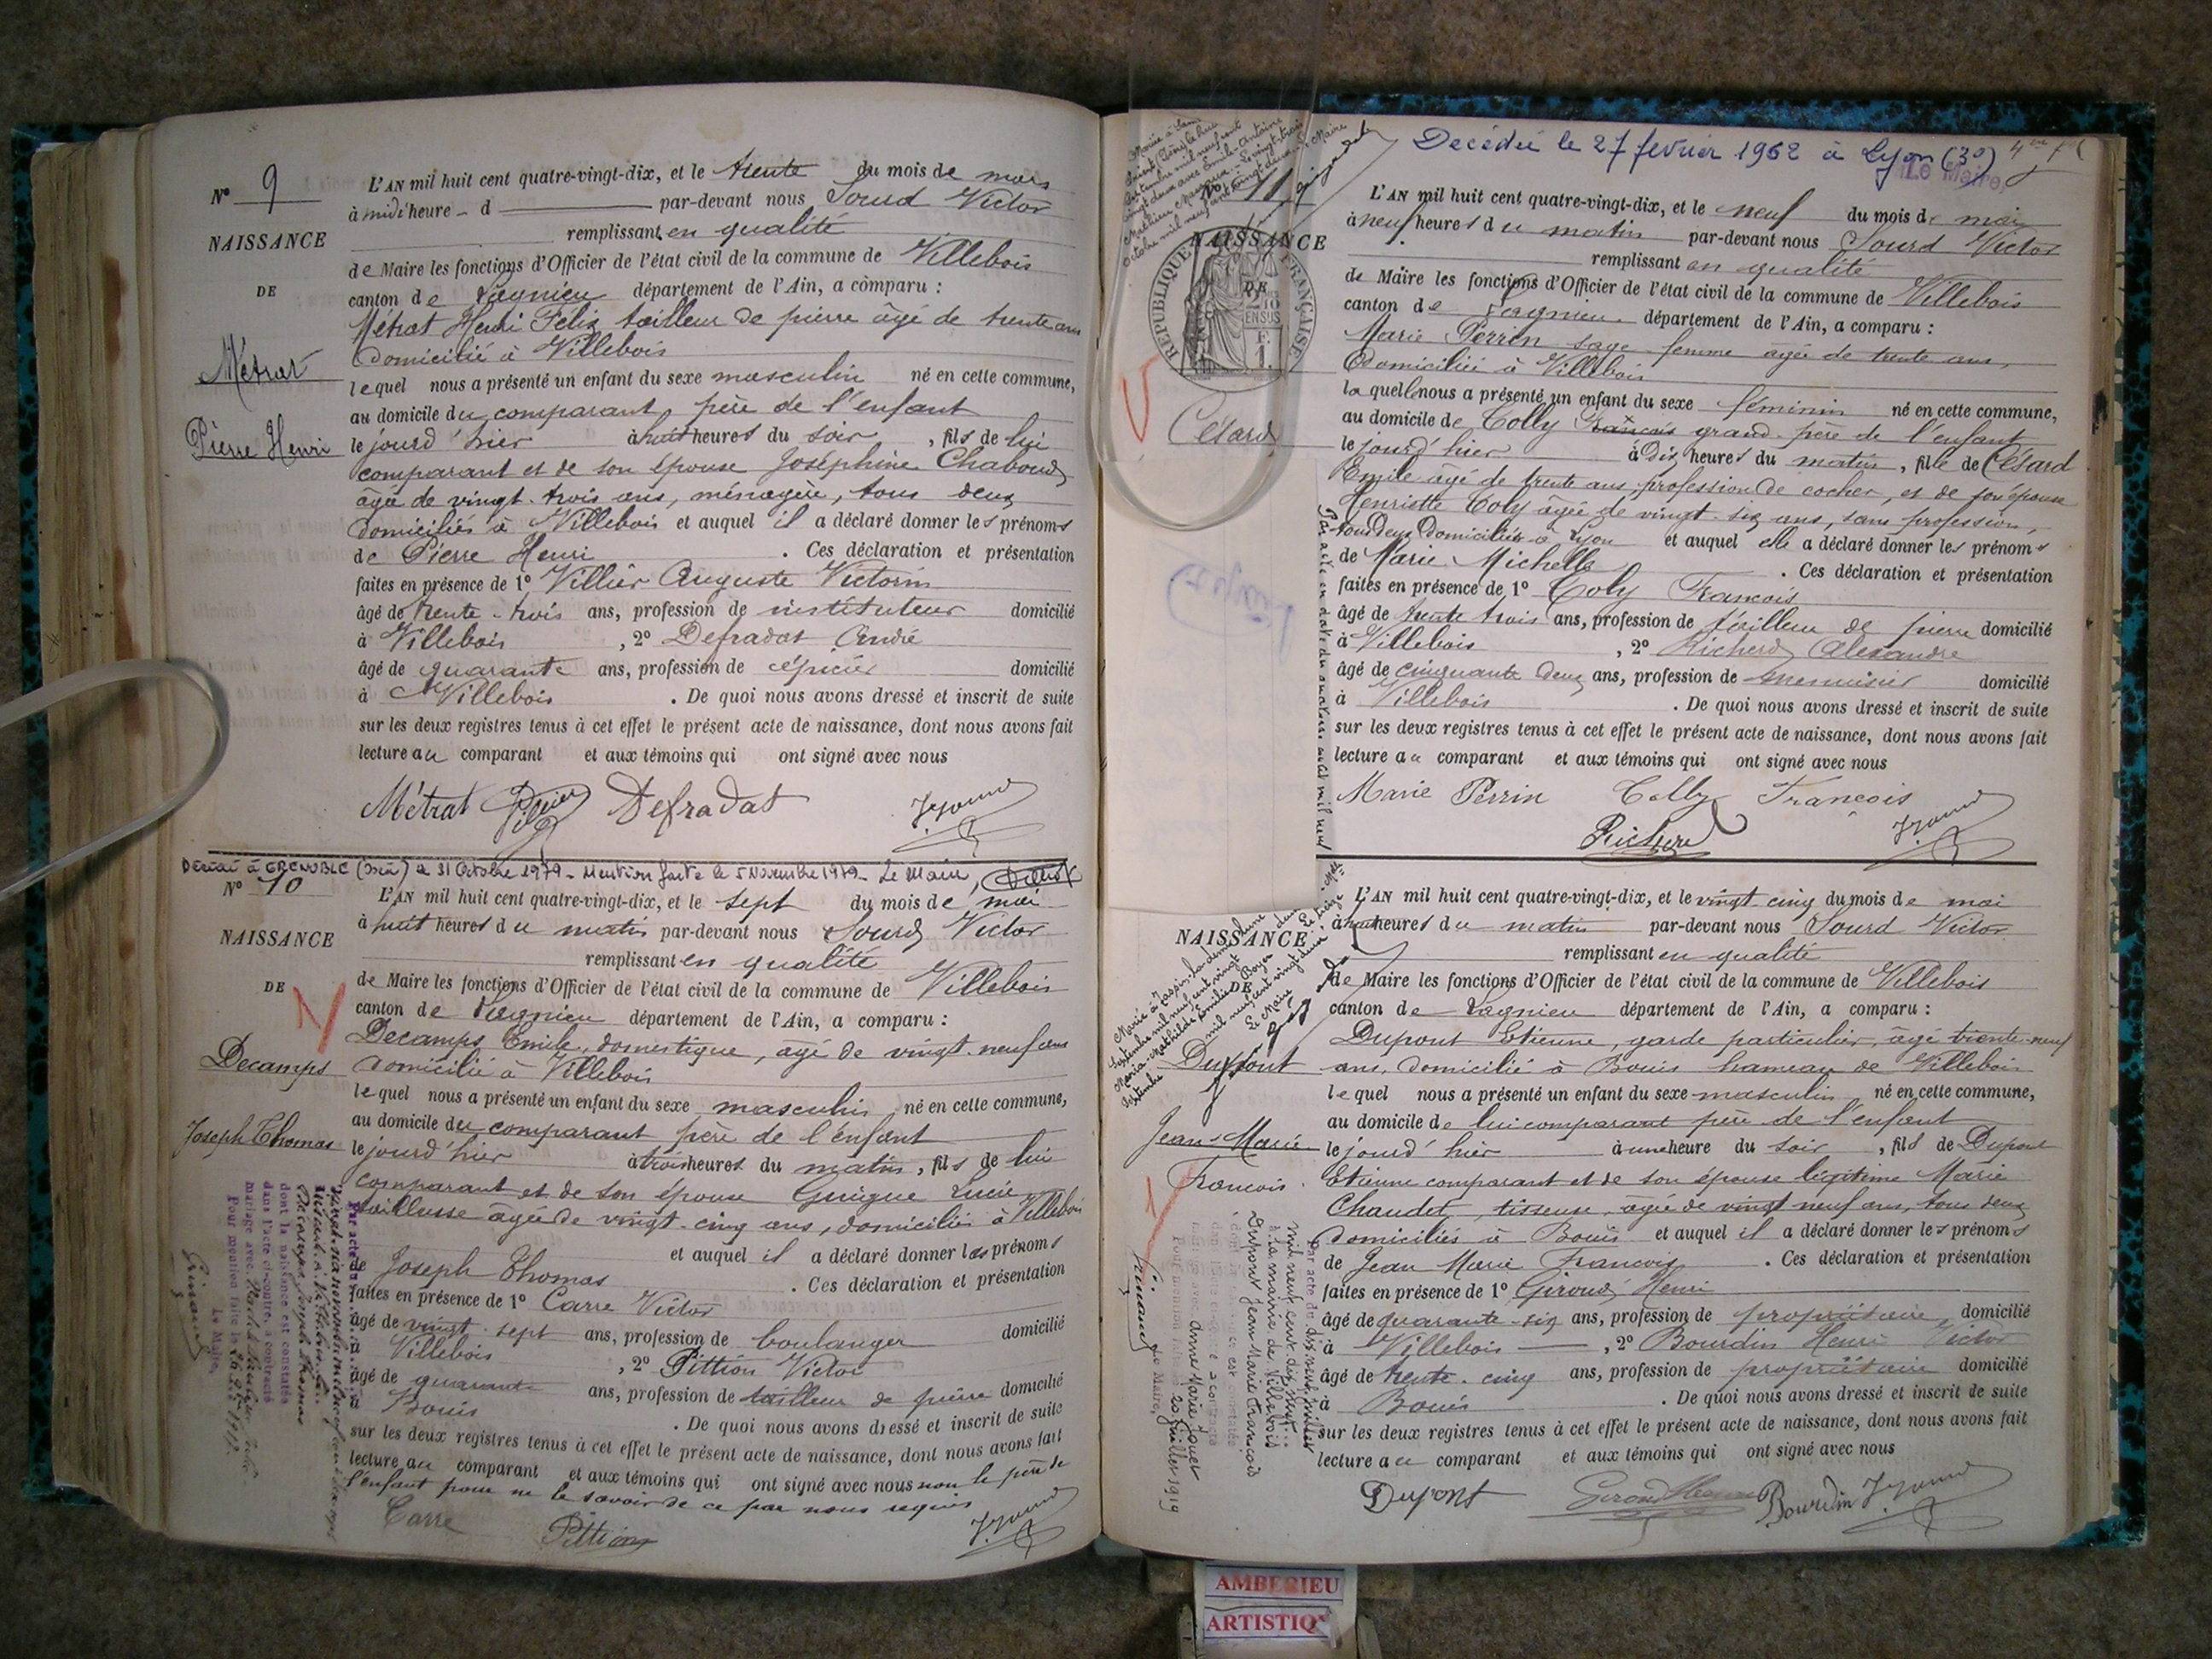 N° 9
NAISSANCE
DE
Métrat
Pierre Henri
L'AN mil huit cent quatre-vingt-dix, et le trente du mois de mars
à midi heure - d par-devant nous Sourd Victor
remplissant en qualité
de Maire les fonctions d'Officier de l'état civil de la commune de Villebois
canton de Lagnieu département de l'Ain, a comparu :
Métrat Henri Felix tailleur de pierre âgé de trente ans
domicilié à Villebois
lequel nous a présenté un enfant du sexe masculin né en cette commune,
au domicile du comparant, père de l'enfant
le jourd'hier à huit heures du soir, fils de lui
comparant et de son épouse Joséphine Chaboud
âgée de vingt-trois ans, ménagère, tous deux
domiciliés à Villebois et auquel il a déclaré donner les prénoms
de Pierre Henri. Ces déclaration et présentation
faites en présence de 1° Villier Auguste Victorin
âgé de trente-trois ans, profession de instituteur domicilié
à Villebois, 2° Defradat André
âgé de quarante ans, profession de épicier domicilié
à Villebois. De quoi nous avons dressé et inscrit de suite
sur les deux registres tenus à cet effet le présent acte de naissance, dont nous avons fait
lecture au comparant et aux témoins qui ont signé avec nous
Métrat Villier Defradat
Décédé à GRENOBLE (Isère) le 31 Octobre 1979 - Mention faite le 5 Novembre 1979 - Le Maire,
N° 10
NAISSANCE
DE
Decamps
Joseph Thomas
L'AN mil huit cent quatre-vingt-dix, et le sept du mois de mai
à huit heures du matin par-devant nous Sourd Victor
remplissant en qualité
de Maire les fonctions d'Officier de l'état civil de la commune de Villebois
canton de Lagnieu département de l'Ain, a comparu :
Decamps Emile, domestique, âgé de vingt-neuf ans
domicilié à Villebois
lequel nous a présenté un enfant du sexe masculin, né en cette commune,
au domicile du comparant père de l'enfant
le jourd'hier à trois heures du matin, fils de lui
comparant et de son épouse Guigue Lucie
tailleuse âgée de vingt-cinq ans, domiciliés à Villebois
et auquel il a déclaré donner les prénoms
de Joseph Thomas. Ces déclaration et présentation
faites en présence de 1° Carre Victor
âgé de vingt-sept ans, profession de boulanger domicilié
à Villebois, 2° Pittion Victor
âgé de quarante ans, profession de tailleur de pierre domicilié
à Bouis. De quoi nous avons dressé et inscrit de suite
sur les deux registres tenus à cet effet le présent acte de naissance, dont nous avons fait
lecture au comparant et aux témoins qui ont signé avec nous non le père de
l'enfant pour ne le savoir de ce par nous requis
Carre Pittion
dont la naissance est constatée
dans l'acte ci-contre, a contracté
mariage avec
Pour mention faite le
Le Maire,
Decédée le 27 fevrier 1962 à Lyon (3e)
Le Maire,
N° 11
NAISSANCE
DE
REPUBLIQUE FRANÇAISE
Césard
L'AN mil huit cent quatre-vingt-dix, et le neuf du mois de mai
à neuf heures du matin par-devant nous Sourd Victor
remplissant en qualité
de Maire les fonctions d'Officier de l'état civil de la commune de Villebois
canton de Lagnieu département de l'Ain, a comparu :
Marie Perrin sage-femme âgée de trente ans,
Domiciliée à Villebois
laquelle nous a présenté un enfant du sexe féminin né en cette commune,
au domicile de Colly François grand-père de l'enfant
le jourd'hier à Dix heures du matin, fille de Césard
Emile âgé de trente ans, profession de cocher, et de son épouse
Henriette Coly âgée de vingt-six ans, sans profession,
tous deux Domiciliés à Lyon et auquel elle a déclaré donner les prénoms
de Marie Michelle. Ces déclaration et présentation
faites en présence de 1° Coly Francois
âgé de trente trois ans, profession de tailleur de pierre domicilié
à Villebois, 2° Richerd Alexandre
âgé de cinquante deux ans, profession de menuisier domicilié
à Villebois. De quoi nous avons dressé et inscrit de suite
sur les deux registres tenus à cet effet le présent acte de naissance, dont nous avons fait
lecture au comparant et aux témoins qui ont signé avec nous
Marie Perrin Colly François
Richerd
NAISSANCE
DE
Dupont
Jean-Marie
Francois.
L'AN mil huit cent quatre-vingt-dix, et le vingt-cinq du mois de mai
à huit heures du matin par-devant nous Sourd Victor
remplissant en qualité
de Maire les fonctions d'Officier de l'état civil de la commune de Villebois
canton de Lagnieu département de l'Ain, a comparu :
Dupont Etienne, garde particulier, âgé trente-neuf
ans, domicilié à Bouis hameau de Villebois
lequel nous a présenté un enfant du sexe masculin né en cette commune,
au domicile de lui comparant père de l'enfant
le jourd'hier à une heure du soir, fils de Dupont
Etienne comparant et de son épouse légitime Marie
Chaudet, tisseuse, âgée de vingt neuf ans, tous deux
domiciliés à Bouis et auquel il a déclaré donner les prénoms
de Jean Marie Francois. Ces déclaration et présentation
faites en présence de 1° Giroud Henri
âgé de quarante-six ans, profession de propriétaire domicilié
à Villebois, 2° Bourdin Henri Victor
âgé de trente-cinq ans, profession de propriétaire domicilié
à Bouis. De quoi nous avons dressé et inscrit de suite
sur les deux registres tenus à cet effet le présent acte de naissance, dont nous avons fait
lecture au comparant et aux témoins qui ont signé avec nous
Dupont Giroud Henri Bourdin
à la mairie de Villebois
Dupont Jean Marie Francois
mariage avec Anne Marie Jouet
Pour mention faite le 20 Juillet 1919
Le Maire,
AMBERIEU
ARTISTIQ